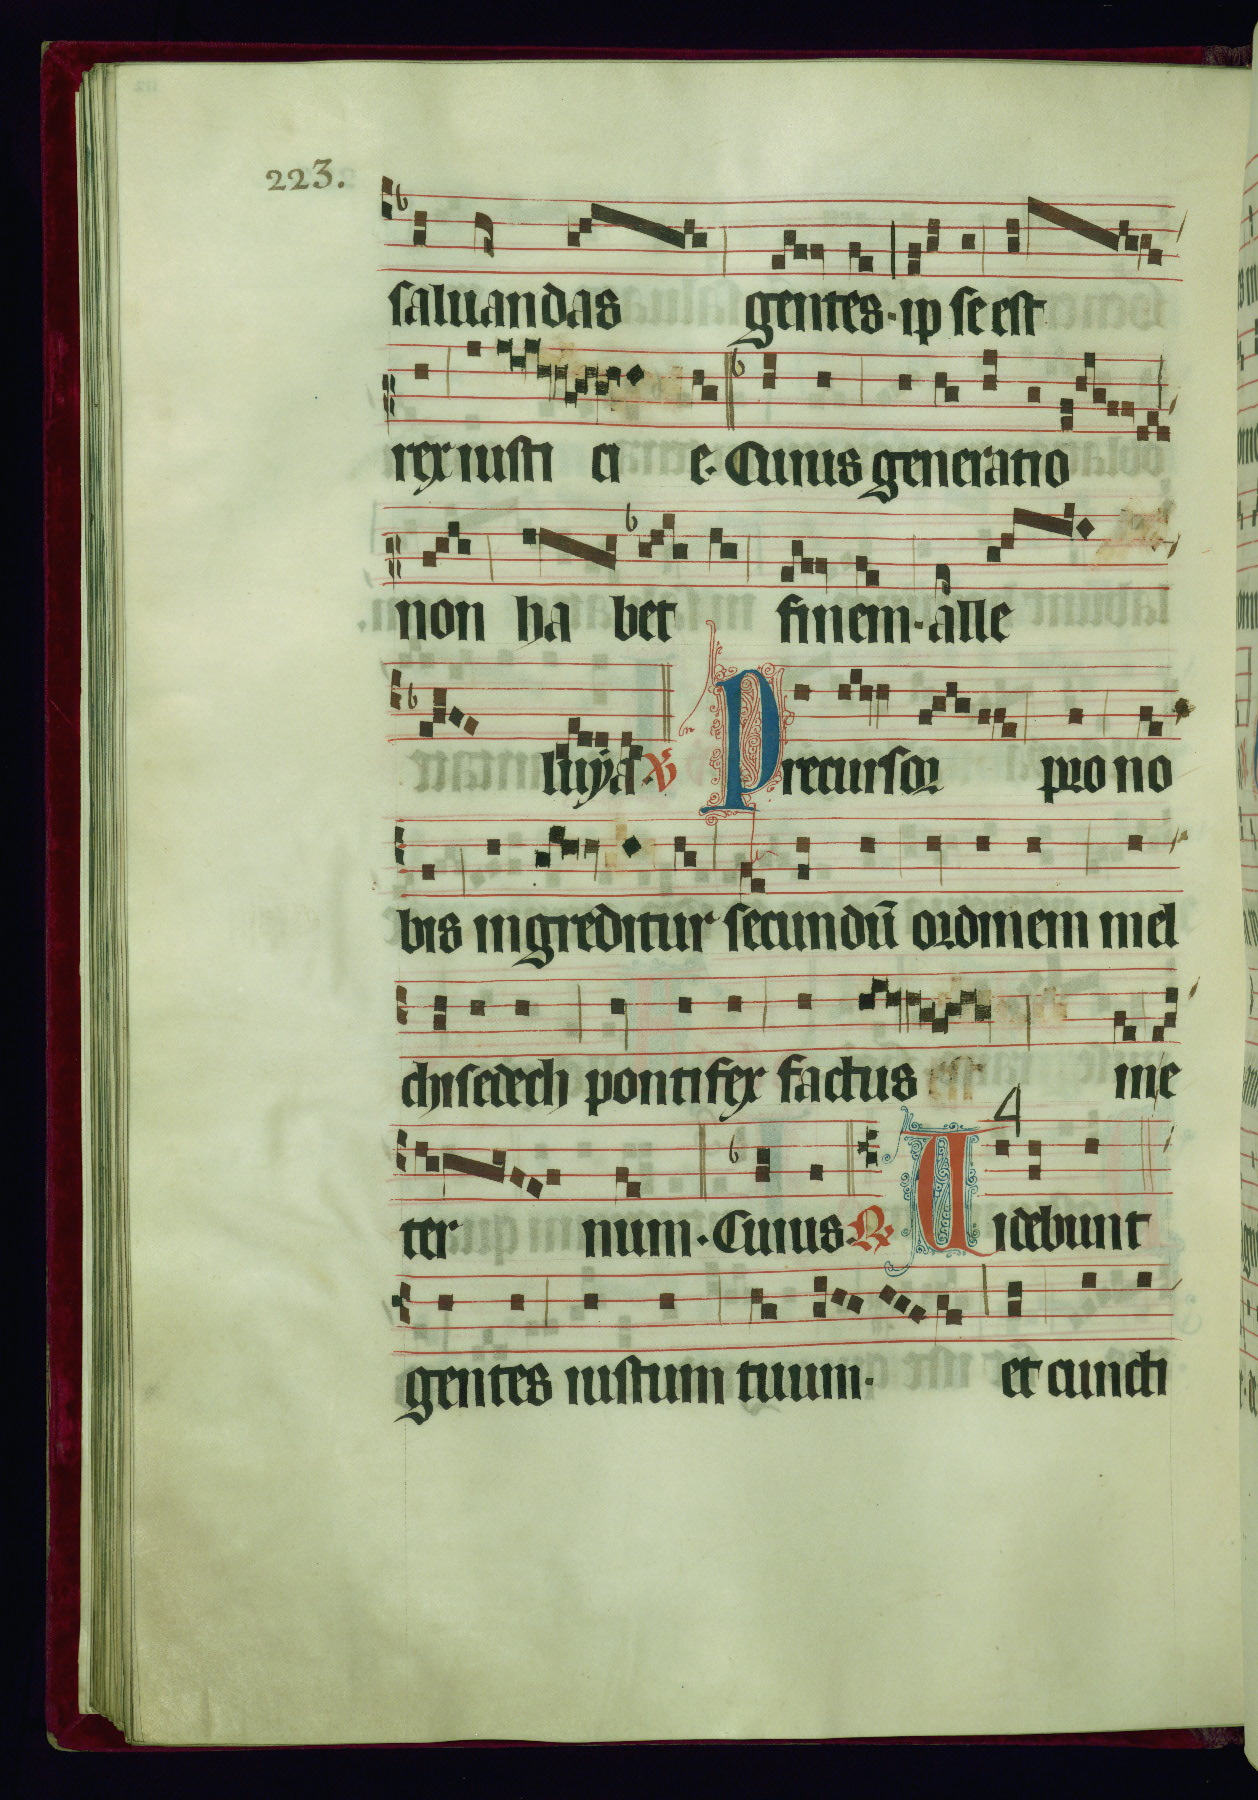 223.
saluandas gentes. ip se est
rex iusti ci e. Cuius generatio
non ha bet finem. alle
luya ℣ Precursor pro no
bis ingreditur secundū ordinem mel
chisedech pontifex factus in e
4
ter num. Cuius ℟ Uidebunt
gentes iustum tuum. et cuncti